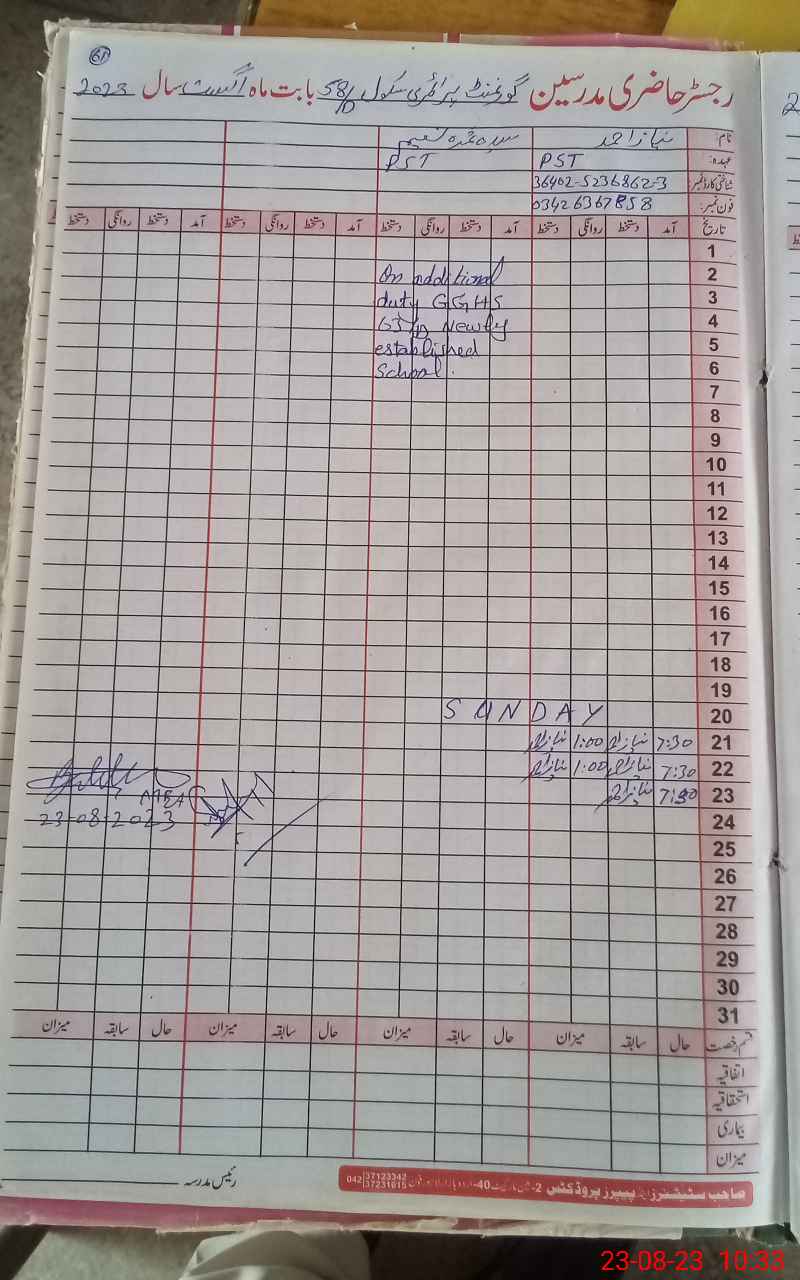 61
رجسٹر حاضری مدرسین گورنمنٹ پرائمری سکول 58/D بابت ماہ اگست سال 2023
نام: نیاز احمد سیدہ عمدہ نسیم
عہدہ: PST PST
شناختی کارڈ نمبر: 36402-5236862-3
فون نمبر: 03426367858
تاریخ آمد دستخط روانگی دستخط آمد دستخط روانگی دستخط آمد دستخط روانگی دستخط آمد دستخط روانگی دستخط
1
2 On additional
3 duty GGHS
4 63/D Newly
5 established
6 School.
7
8
9
10
11
12
13
14
15
16
17
18
19
20 SUNDAY
21 7:30 نیاز احمد 1:00 نیاز احمد
22 7:30 نیاز احمد 1:00 نیاز احمد
23 7:30 نیاز احمد
MEA
24 23-08-2023
25
26
27
28
29
30
31
قسم رخصت حال سابقہ میزان حال سابقہ میزان حال سابقہ میزان حال سابقہ میزان
اتفاقیہ
استحقاقیہ
بیماری
میزان
رئیس مدرسہ
صاحب سٹیشنرز اینڈ پیپرز پروڈکٹس 2- 40-اردو بازار لاہور فون 042 37123342 37231615
23-08-23 10:33